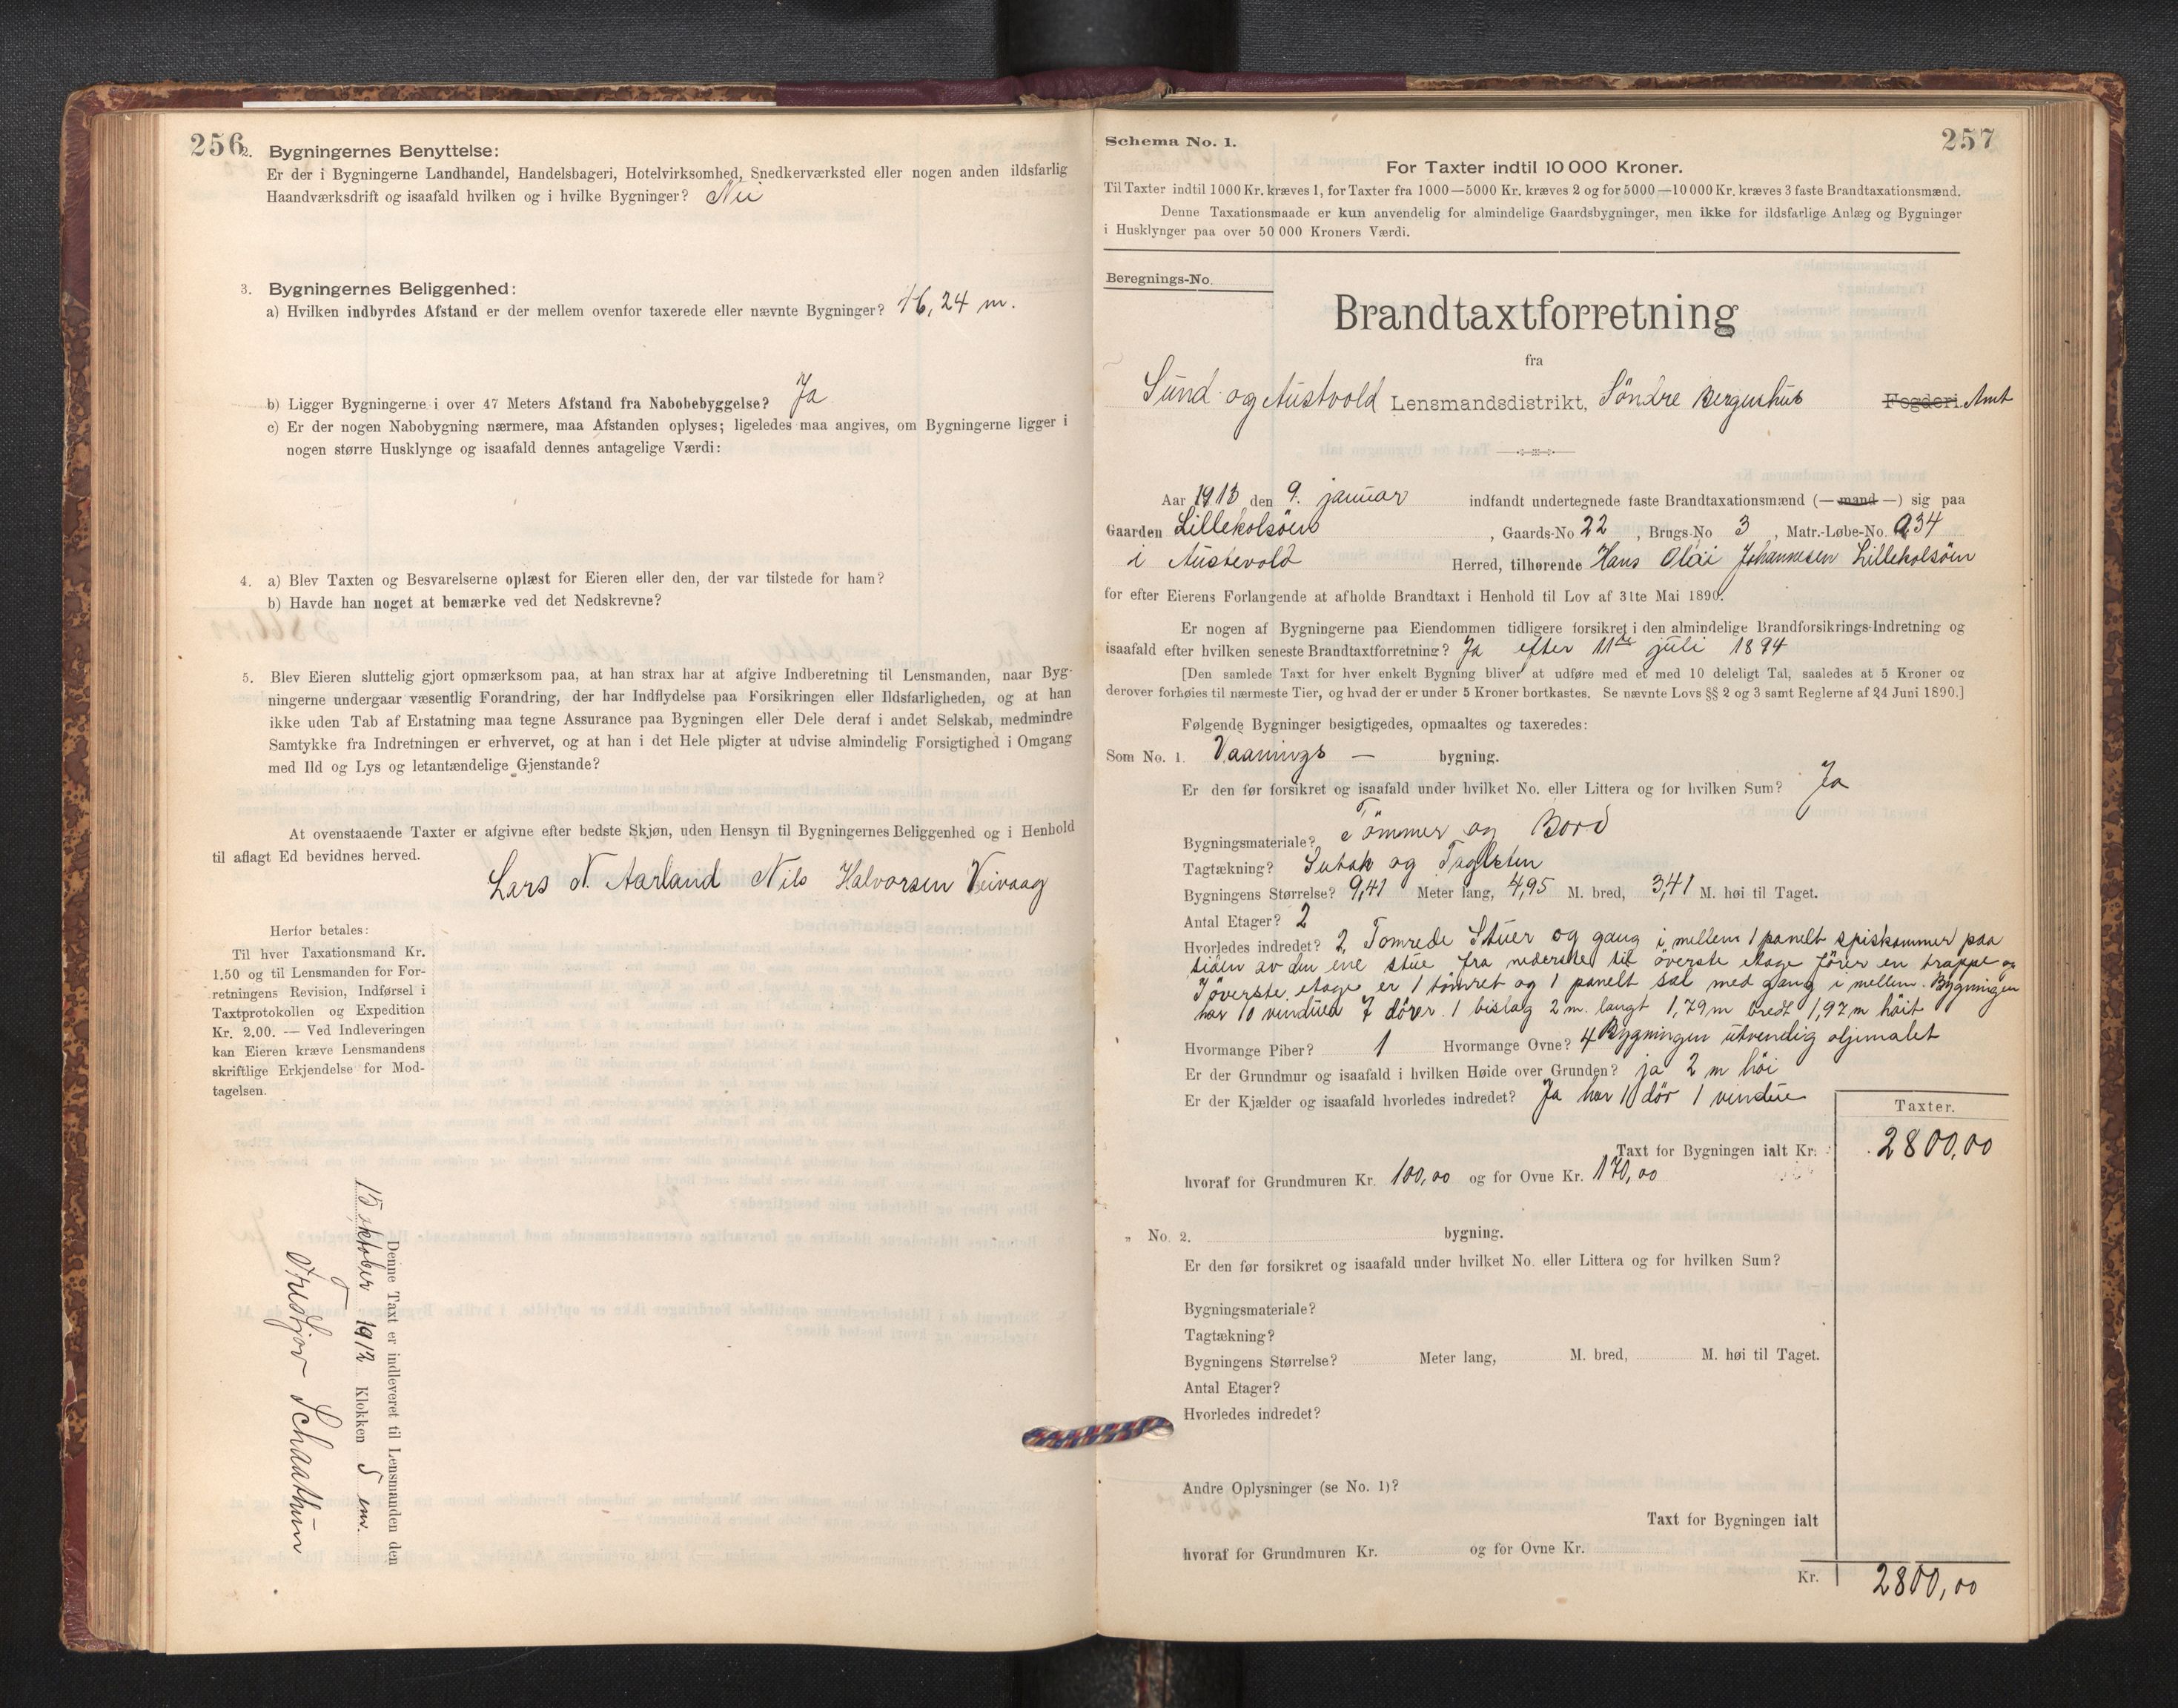 256
2. Bygningernes Benyttelse:
Er der i Bygningerne Landhandel, Handelsbageri, Hotelvirksomhed, Snedkerværksted eller nogen anden ildsfarlig
Haandværksdrift og isaafald hvilken og i hvilke Bygninger? Nei
3. Bygningernes Beliggenhed:
a) Hvilken indbyrdes Afstand er der mellem ovenfor taxerede eller nævnte Bygninger? 16,24 m.
b) Ligger Bygningerne i over 47 Meters Afstand fra Nabobebyggelse? Ja
c) Er der nogen Nabobygning nærmere, maa Afstanden oplyses; ligeledes maa angives, om Bygningerne ligger i
nogen større Husklynge og isaafald dennes antagelige Værdi:
4. a) Blev Taxten og Besvarelserne oplæst for Eieren eller den, der var tilstede for ham?
b) Havde han noget at bemærke ved det Nedskrevne?
5. Blev Eieren sluttelig gjort opmærksom paa, at han strax har at afgive Indberetning til Lensmanden, naar Byg-
ningerne undergaar væsentlig Forandring, der har Indflydelse paa Forsikringen eller Ildsfarligheden, og at han
ikke uden Tab af Erstatning maa tegne Assurance paa Bygningen eller Dele deraf i andet Selskab, medmindre
Samtykke fra Indretningen er erhvervet, og at han i det Hele pligter at udvise almindelig Forsigtighed i Omgang
med Ild og Lys og letantændelige Gjenstande?
At ovenstaaende Taxter er afgivne efter bedste Skjøn, uden Hensyn til Bygningernes Beliggenhed og i Henhold
til aflagt Ed bevidnes herved.
Lars N. Aarland Nils Halvorsen Veivaag
Herfor betales:
Til hver Taxationsmand Kr.
1.50 og til Lensmanden for For-
retningens Revision, Indførsel i
Taxtprotokollen og Expedition
Kr. 2.00. — Ved Indleveringen
kan Eieren kræve Lensmandens
skriftlige Erkjendelse for Mod-
tagelsen.
Denne Taxt er indleveret til Lensmanden den
15 oktober 1912 Klokken 5 em.
Fridtjov Schaathun
Schema No. 1.
257
For Taxter indtil 10 000 Kroner.
Til Taxter indtil 1000 Kr. kræves 1, for Taxter fra 1000—5000 Kr. kræves 2 og for 5000—10 000 Kr. kræves 3 faste Brandtaxationsmænd.
Denne Taxationsmaade er kun anvendelig for almindelige Gaardsbygninger, men ikke for ildsfarlige Anlæg og Bygninger
i Husklynger paa over 50 000 Kroners Værdi.
Beregnings-No.
Brandtaxtforretning
fra
Sund og Austvold Lensmandsdistrikt, Söndre Bergenhus Fogderi. Amt
Aar 1913 den 9. januar indfandt undertegnede faste Brandtaxationsmænd (— mand —) sig paa
Gaarden Lillekolsöen, Gaards-No 22, Brugs-No 3, Matr.-Løbe-No. 234
i Austevold Herred, tilhørende Hans Olai Johannesen Lillekolsöen
for efter Eierens Forlangende at afholde Brandtaxt i Henhold til Lov af 31te Mai 1890.
Er nogen af Bygningerne paa Eiendommen tidligere forsikret i den almindelige Brandforsikrings-Indretning og
isaafald efter hvilken seneste Brandtaxtforretning? Ja efter 11te juli 1894
[Den samlede Taxt for hver enkelt Bygning bliver at udføre med et med 10 deleligt Tal, saaledes at 5 Kroner og
derover forhøies til nærmeste Tier, og hvad der er under 5 Kroner bortkastes. Se nævnte Lovs §§ 2 og 3 samt Reglerne af 24 Juni 1890.]
Følgende Bygninger besigtigedes, opmaaltes og taxeredes:
Som No. 1. Vaanings — bygning.
Er den før forsikret og isaafald under hvilket No. eller Littera og for hvilken Sum? Ja
Bygningsmateriale? Tömmer og Bord
Tagtækning? Sutak og Taglsten
Bygningens Størrelse? 9,41 Meter lang, 4,95 M. bred, 3,41 M. høi til Taget.
Antal Etager? 2
Hvorledes indredet? 2 Tomrede Stuer og gang i mellem 1 panelt spiskammer paa
siden av den ene stue fra nederste til överste etage förer en trappe og
I överste etage er 1 tömret og 1 panelt sal med gang i mellem. Bygningen
har 10 vinduer 7 dörer. 1 bislag 2 m. langt 1,79 m bredt 1,97 m höit
Hvormange Piber? 1 Hvormange Ovne? 4 Bygningen utvendig oljemalet
Er der Grundmur og isaafald i hvilken Høide over Grunden? ja 2 m höi
Er der Kjælder og isaafald hvorledes indredet? Ja har 1 dör 1 vindue
Taxter.
Taxt for Bygningen ialt Kr. 2800,00
hvoraf for Grundmuren Kr. 100,00 og for Ovne Kr. 170,00
„ No. 2. bygning.
Er den før forsikret og isaafald under hvilket No. eller Littera og for hvilken Sum?
Bygningsmateriale?
Tagtækning?
Bygningens Størrelse? Meter lang, M. bred, M. høi til Taget.
Antal Etager?
Hvorledes indredet?
Andre Oplysninger (se No. 1)?
Taxt for Bygningen ialt
hvoraf for Grundmuren Kr. og for Ovne Kr.
Kr. 2800,00